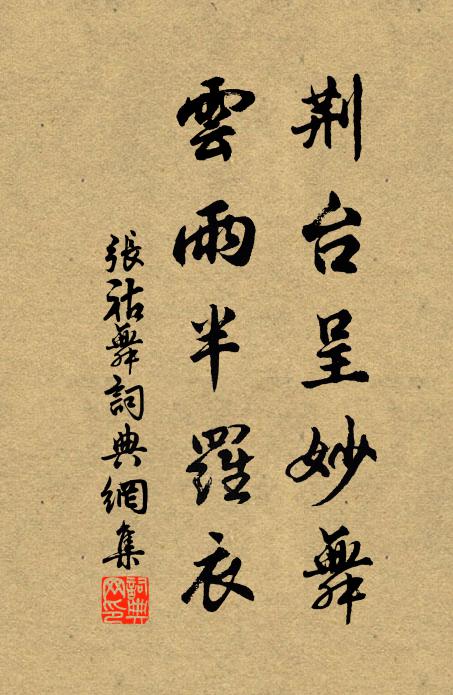 荆台呈妙舞
雲雨半羅衣
張祜舞詞典網集
詞典網印